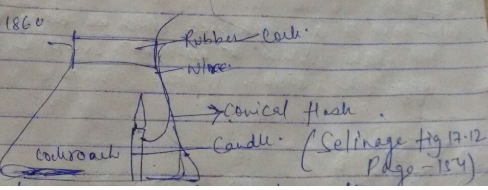 1860
Rubber Cork.
Wire.
Conical flask.
Candle.
Cockroach
(Selinage fig 17.12
Page - 154)